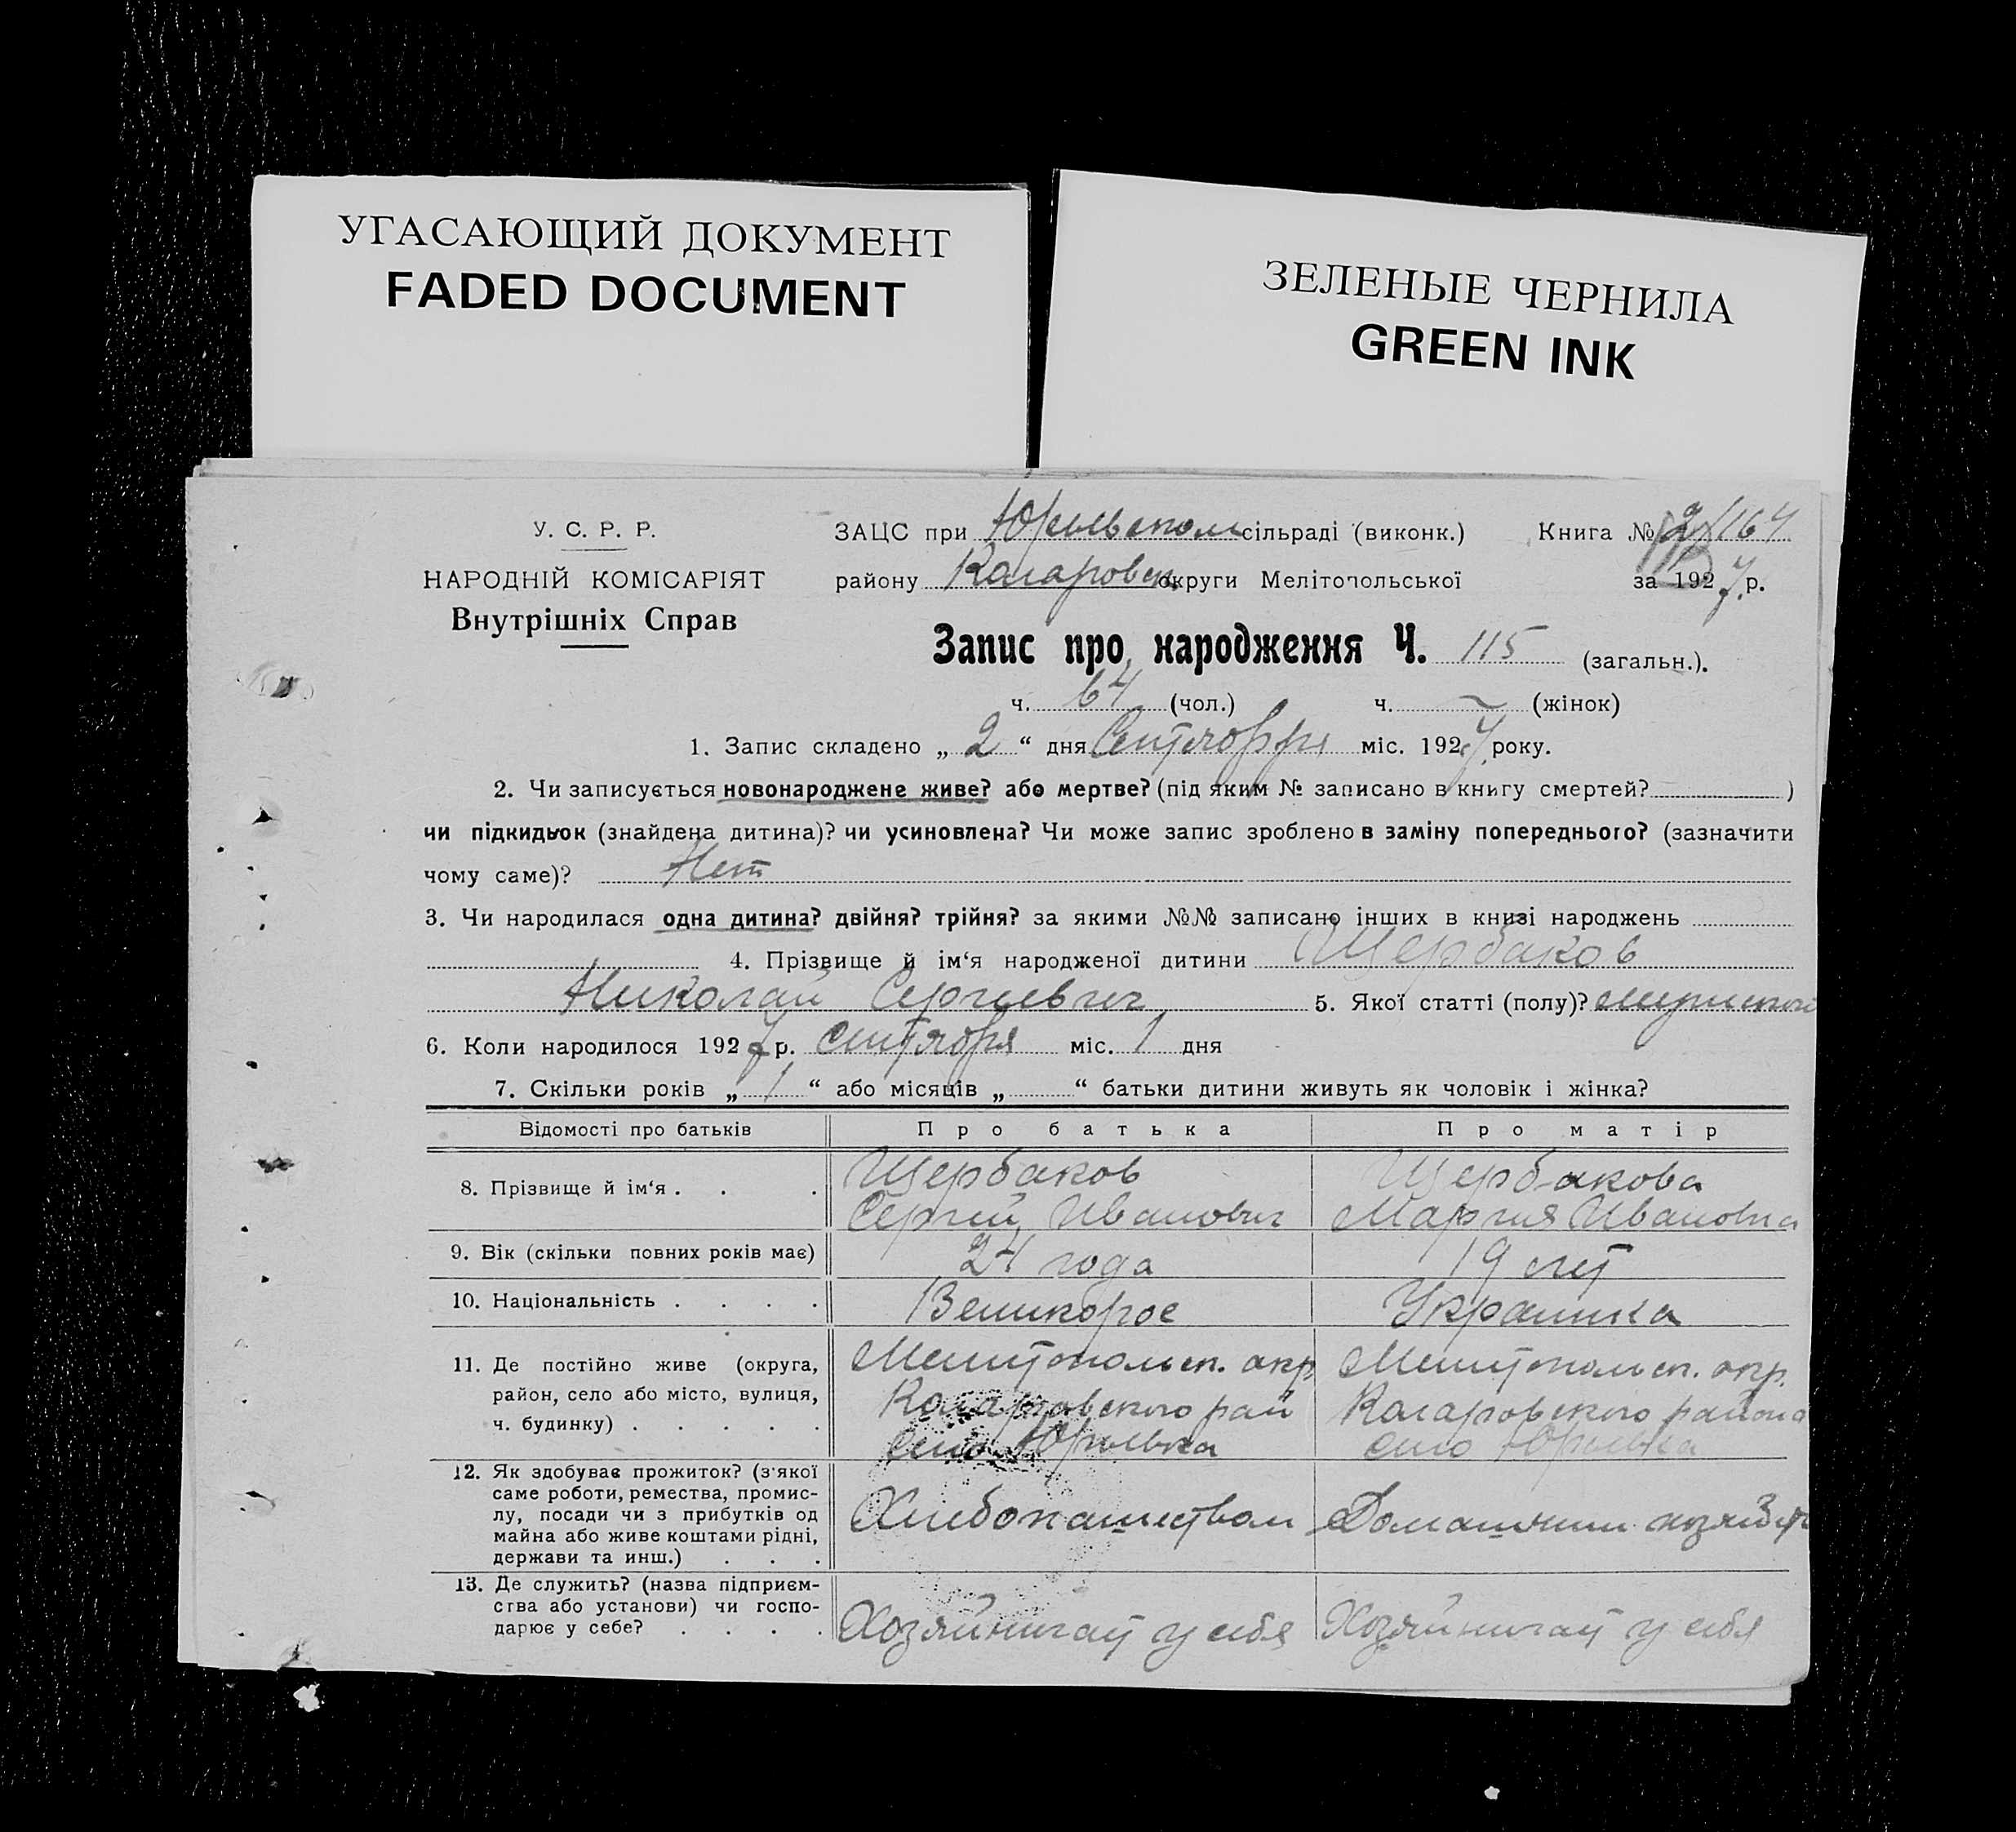 УГАСАЮЩИЙ ДОКУМЕНТ
FADED DOCUMENT
ЗЕЛЕНЫЕ ЧЕРНИЛА
GREEN INK
У. С. Р. Р.
НАРОДНІЙ КОМІСАРІЯТ
Внутрішніх Справ
ЗАЦС при Юрьевском сільраді (виконк.) Книга № 2/164
району Коларовск. округи Мелітопольської за 1927 р.
Запис про народження Ч. 115 (загальн.).
ч. 64 (чол.) ч. — (жінок)
1. Запис складено „ 2 “ дня Сентября міс. 1927 року.
2. Чи записується новонароджене живе? або мертве? (під яким № записано в книгу смертей? )
чи підкидьок (знайдена дитина)? чи усиновлена? Чи може запис зроблено в заміну попереднього? (зазначити
чому саме)? Нет
3. Чи народилася одна дитина? двійня? трійня? за якими №№ записано інших в книзі народжень
4. Прізвище й ім‘я народженої дитини Щербаков
Николай Сергиевич 5. Якої статті (полу)? мужской
6. Коли народилося 1927 р. сентября міс. 1 дня
7. Скільки років „ 1 “ або місяців „ “ батьки дитини живуть як чоловік і жінка?
Відомості про батьків Про батька Про матір
8. Прізвище й ім‘я . . . Щербаков Щербакова
Сергий Иванович Мария Ивановна
9. Вік (скільки повних років має) 24 года 19 лет
10. Національність . . . . Великорос Украинка
11. Де постійно живе (округа, Мелитопольск. окр. Мелитопольск. окр.
район, село або місто, вулиця, Коларовского рай Коларовского района
ч. будинку) . . . . . село Юрьевка село Юрьевка
12. Як здобуває прожиток? (з'якої
саме роботи, ремества, промис-
лу, посади чи з прибутків од Хлебопашеством Домашним
майна або живе коштами рідні,
держави та инш.) . . .
13. Де служить? (назва підприєм-
ства або установи) чи госпо-
дарює у себе? . . . . Хозяйничает у себя Хозяйничает у себя